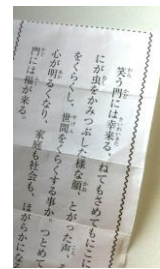 笑う門には幸来る、ねてもさめてもにこ
にが虫をかみつぶした様な顔、とがった声、
をくらくし、世間をくらくする事か。つとめて
心が明るくなり、家庭も社会も、ほがらかにな
門には福が来る。